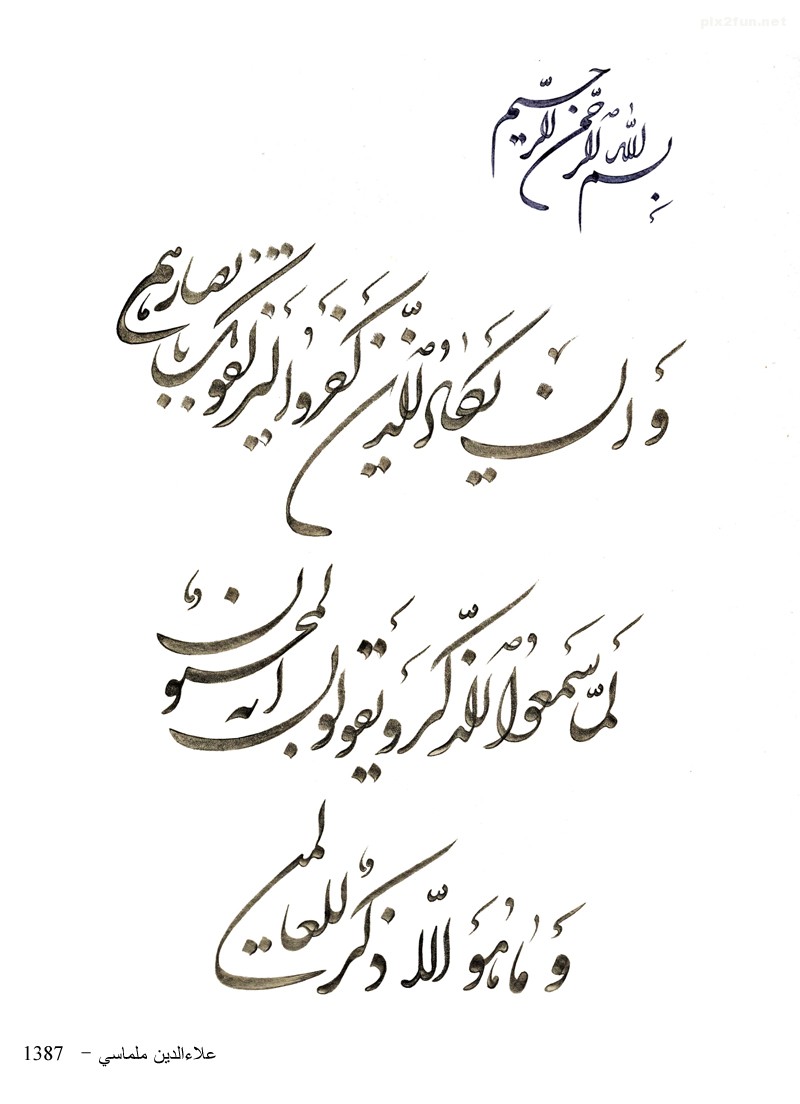 pix2fun.net
بسم الله الرحمن الرحیم
وَ ان یَکادُ الَّذینَ کَفَروا لَیَزلقونَکَ بابصارهم
لَمّا سَمعوا الذِّکرَ وَ یَقولونَ انه لمجنون
وَ ما هُوَ الّا ذکرٌ للعالمین
علاءالدین ملماسي - 1387